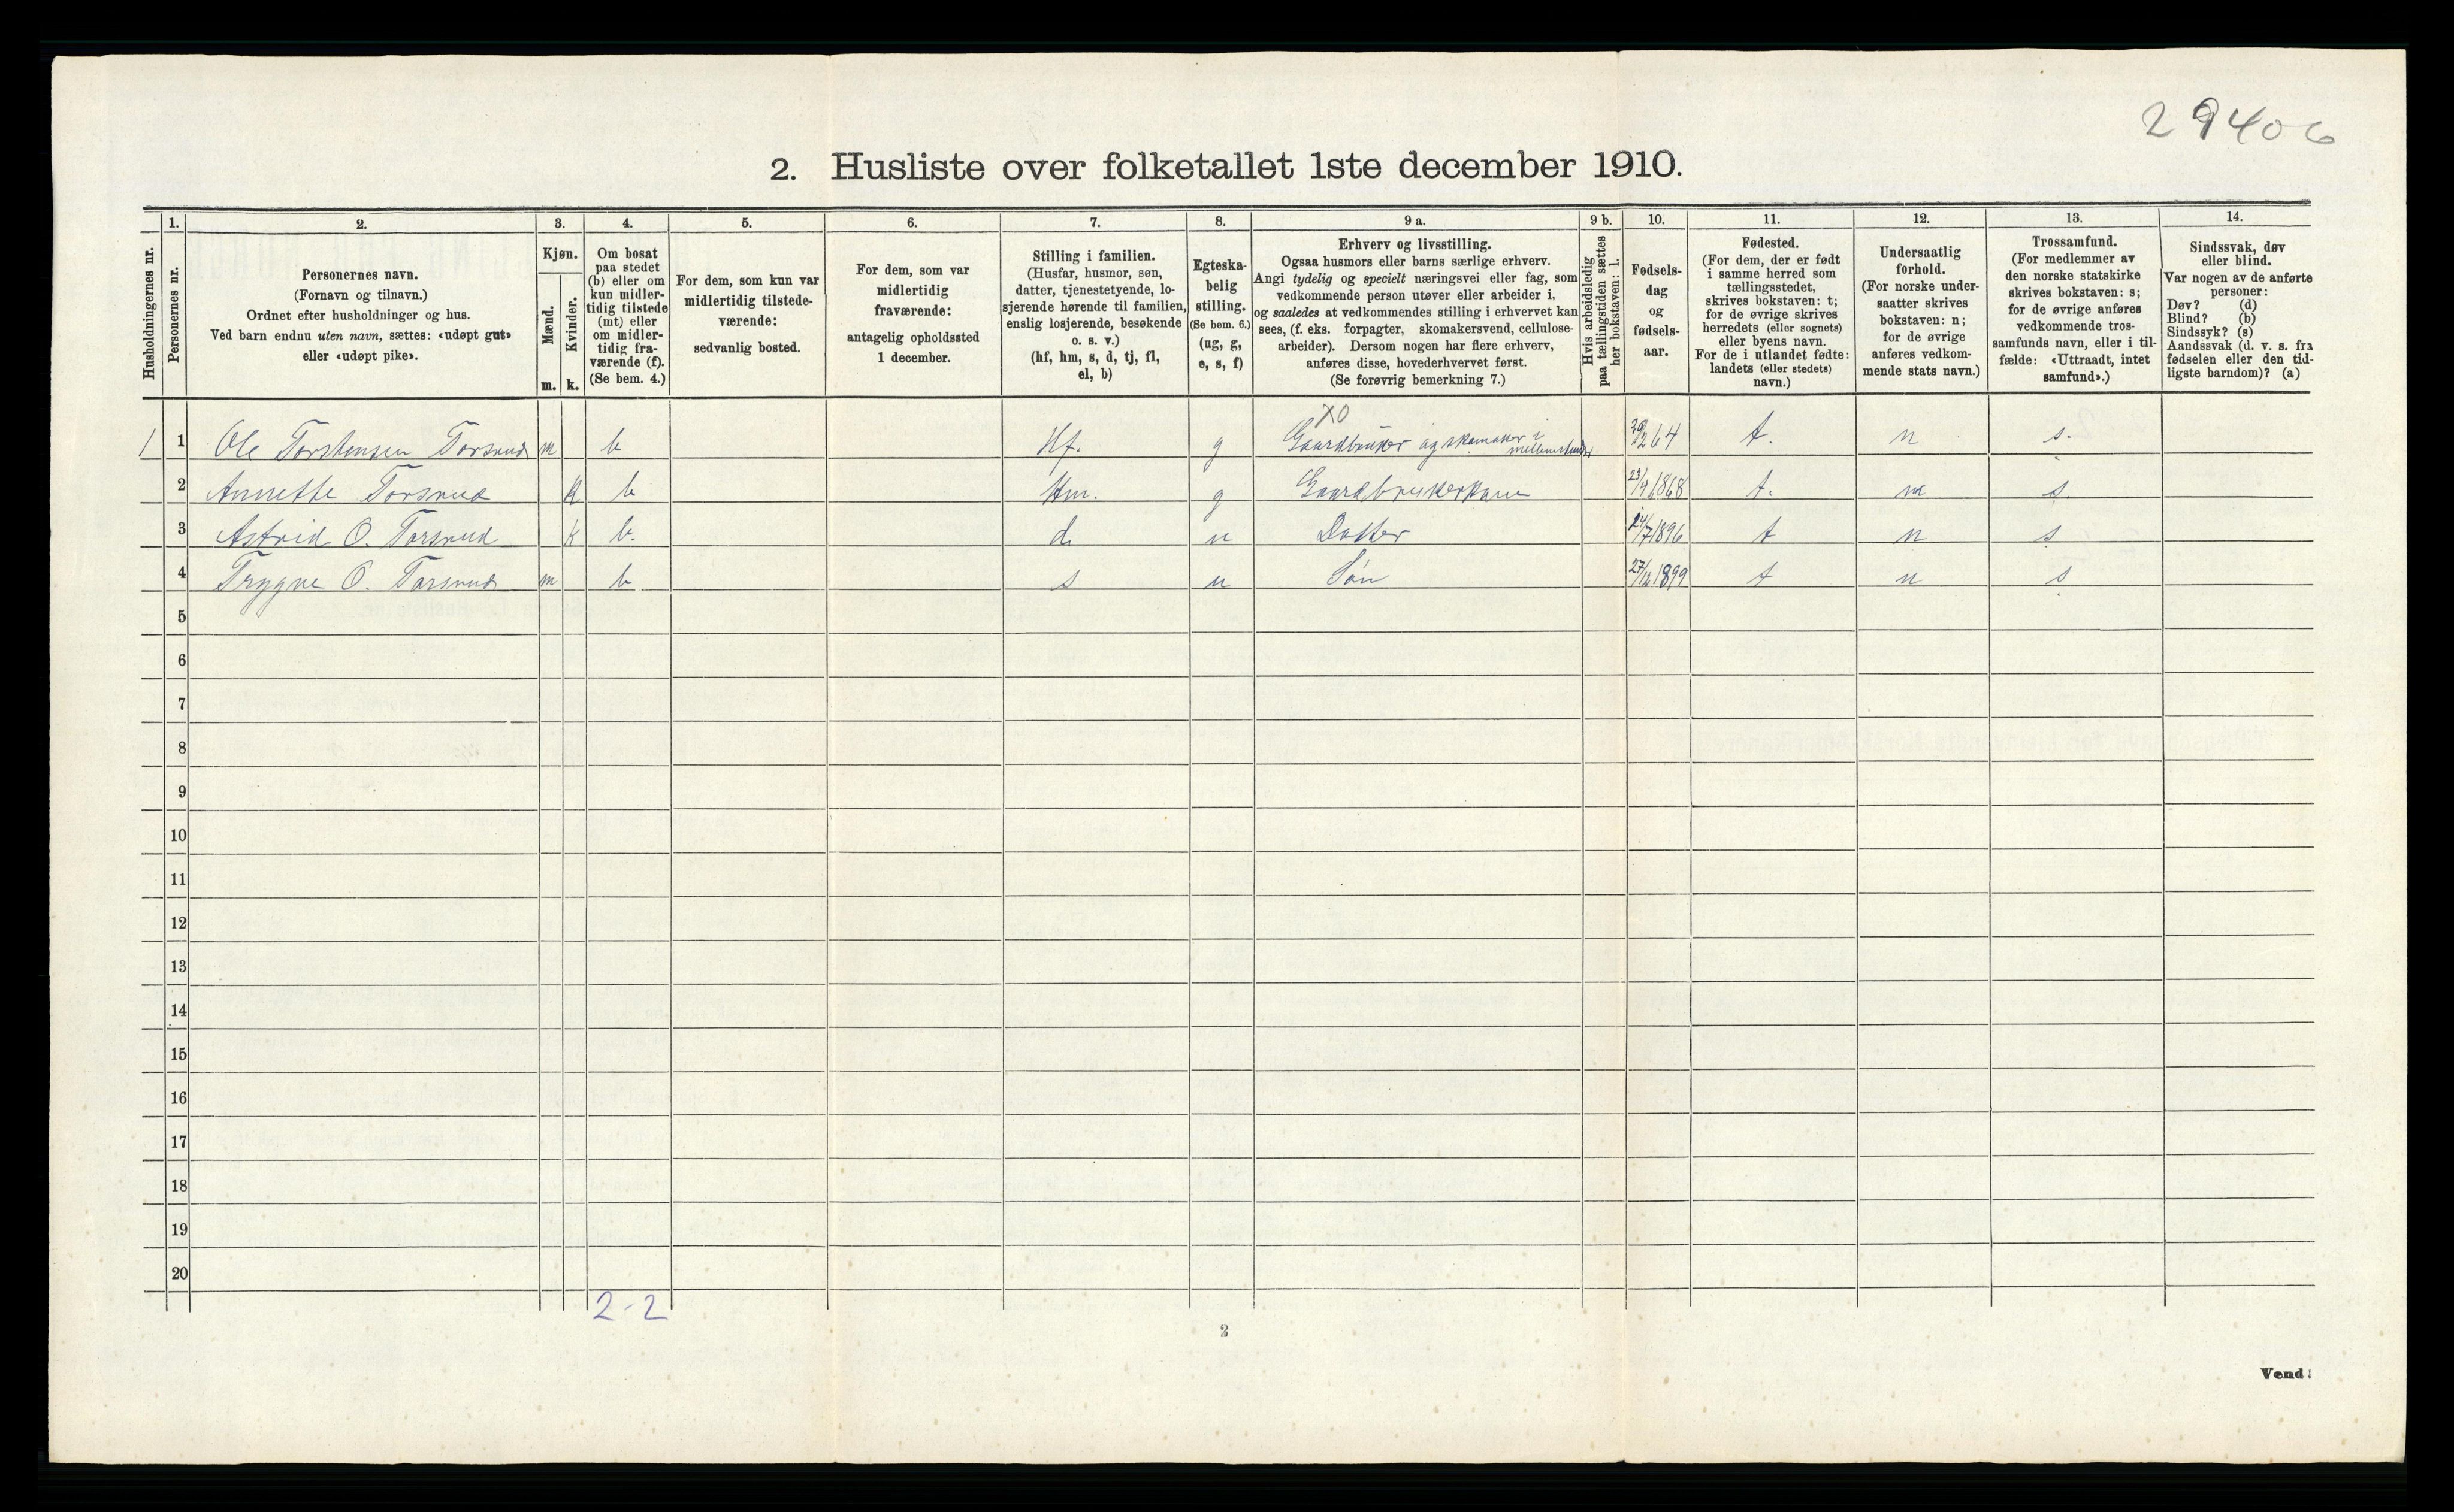 29406
2. Husliste over folketallet 1ste december 1910.
Husholdningernes nr.
1.
Personernes nr.
2.
Personernes navn.
(Fornavn og tilnavn.)
Ordnet efter husholdninger og hus.
Ved barn endnu uten navn, sættes: «udøpt gut»
eller «udøpt pike».
3.
Kjøn.
Mænd.
m.
Kvinder.
k.
4.
Om bosat
paa stedet
(b) eller om
kun midler-
tidig tilstede
(mt) eller
om midler-
tidig fra-
værende (f).
(Se bem. 4.)
5.
For dem, som kun var
midlertidig tilstede-
værende:
sedvanlig bosted.
6.
For dem, som var
midlertidig
fraværende:
antagelig opholdssted
1 december.
7.
Stilling i familien.
(Husfar, husmor, søn,
datter, tjenestetyende, lo-
sjerende hørende til familien,
enslig losjerende, besøkende
o. s. v.)
(hf, hm, s, d, tj, fl,
el, b)
8.
Egteska-
belig
stilling.
(Se bem. 6.)
(ug, g,
e, s, f)
9 a.
Erhverv og livsstilling.
Ogsaa husmors eller barns særlige erhverv.
Angi tydelig og specielt næringsvei eller fag, som
vedkommende person utøver eller arbeider i,
og saaledes at vedkommendes stilling i erhvervet kan
sees, (f. eks. forpagter, skomakersvend, cellulose-
arbeider). Dersom nogen har flere erhverv,
anføres disse, hovederhvervet først.
(Se forøvrig bemerkning 7.)
9 b.
Hvis arbeidsledig
paa tællingstiden sættes
her bokstaven: l.
10.
Fødsels-
dag
og
fødsels-
aar.
11.
Fødested.
(For dem, der er født
i samme herred som
tællingsstedet,
skrives bokstaven: t;
for de øvrige skrives
herredets (eller sognets)
eller byens navn.
For de i utlandet fødte:
landets (eller stedets)
navn.)
12.
Undersaatlig
forhold.
(For norske under-
saatter skrives
bokstaven: n;
for de øvrige
anføres vedkom-
mende stats navn.)
13.
Trossamfund.
(For medlemmer av
den norske statskirke
skrives bokstaven: s;
for de øvrige anføres
vedkommende tros-
samfunds navn, eller i til-
fælde: «Uttraadt, intet
samfund».)
14.
Sindssvak, døv
eller blind.
Var nogen av de anførte
personer:
Døv? (d)
Blind? (b)
Sindssyk? (s)
Aandssvak (d. v. s. fra
fødselen eller den tid-
ligste barndom)? (a)
X0
1 1 Ole Torstensen Torsrud m b Hf. g Gaardbruker og skomaker i mellemstunder 64 t. n s.
2 Annette Torsrud k b Hm. g Gaardbrukerkone 1868 t. n s
3 Astrid O. Torsrud k b. d u Datter 24/7 1896 t n s
4 Trygve O. Torsrud m b s u Søn 27/12 1899 t n s
5
6
7
8
9
10
11
12
13
14
15
16
17
18
19
20
2-2
2
Vend!